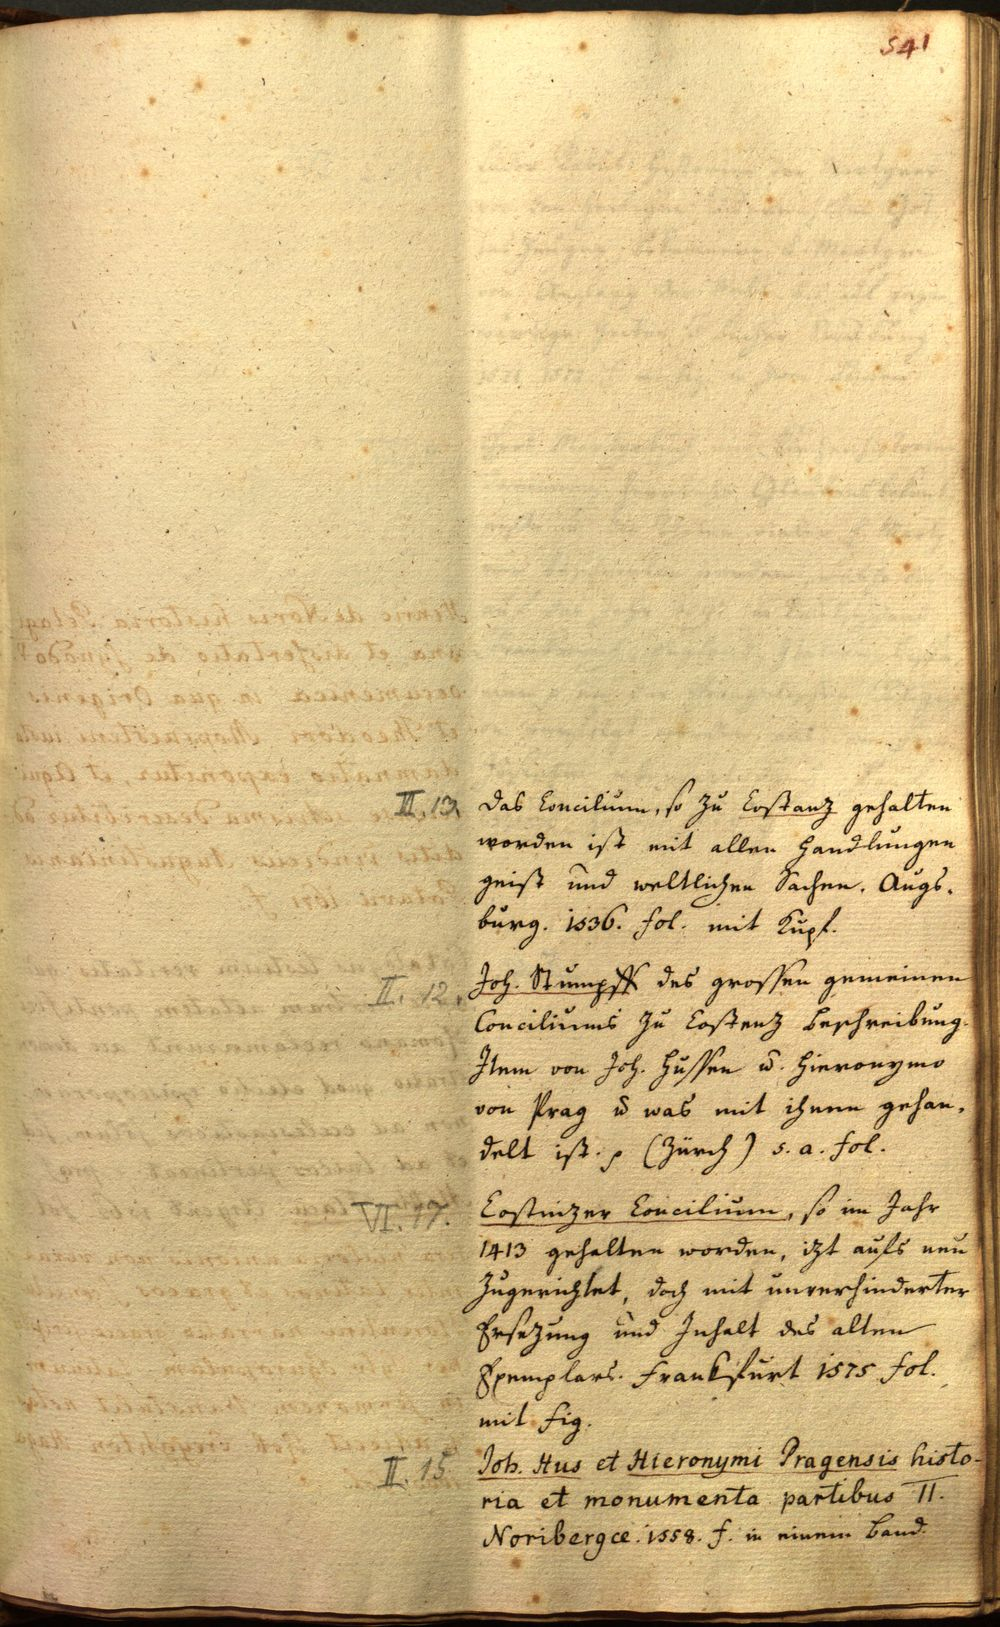 541
III. 13. das Concilium, so zu Costanz gehalten
worden ist mit allen Handlungen
geist und weltlichen Sachen. Augs-
burg. 1536. fol. mit Kupf.
II. 12. Joh. Stumpff des grossen gemeinen
Conciliums zu Costenz beschreibung.
Item von Joh. Hussen u. Hieronymo
von Prag u was mit ihnen gehan-
delt ist. (Zürch) s. a. fol.
VI. 17. Costnizer Concilium, so im Jahr
1413 gehalten worden, izt aufs neu
zugerichtet, doch mit unverhinderter
Ersezung und Inhalt des alten
Exemplars. Frankfurt 1575 fol.
mit fig.
II. 15. Joh. Hus et Hieronymi Pragensis histo-
ria et monumenta partibus II.
Noribergæ. 1558. f. in einem Band.